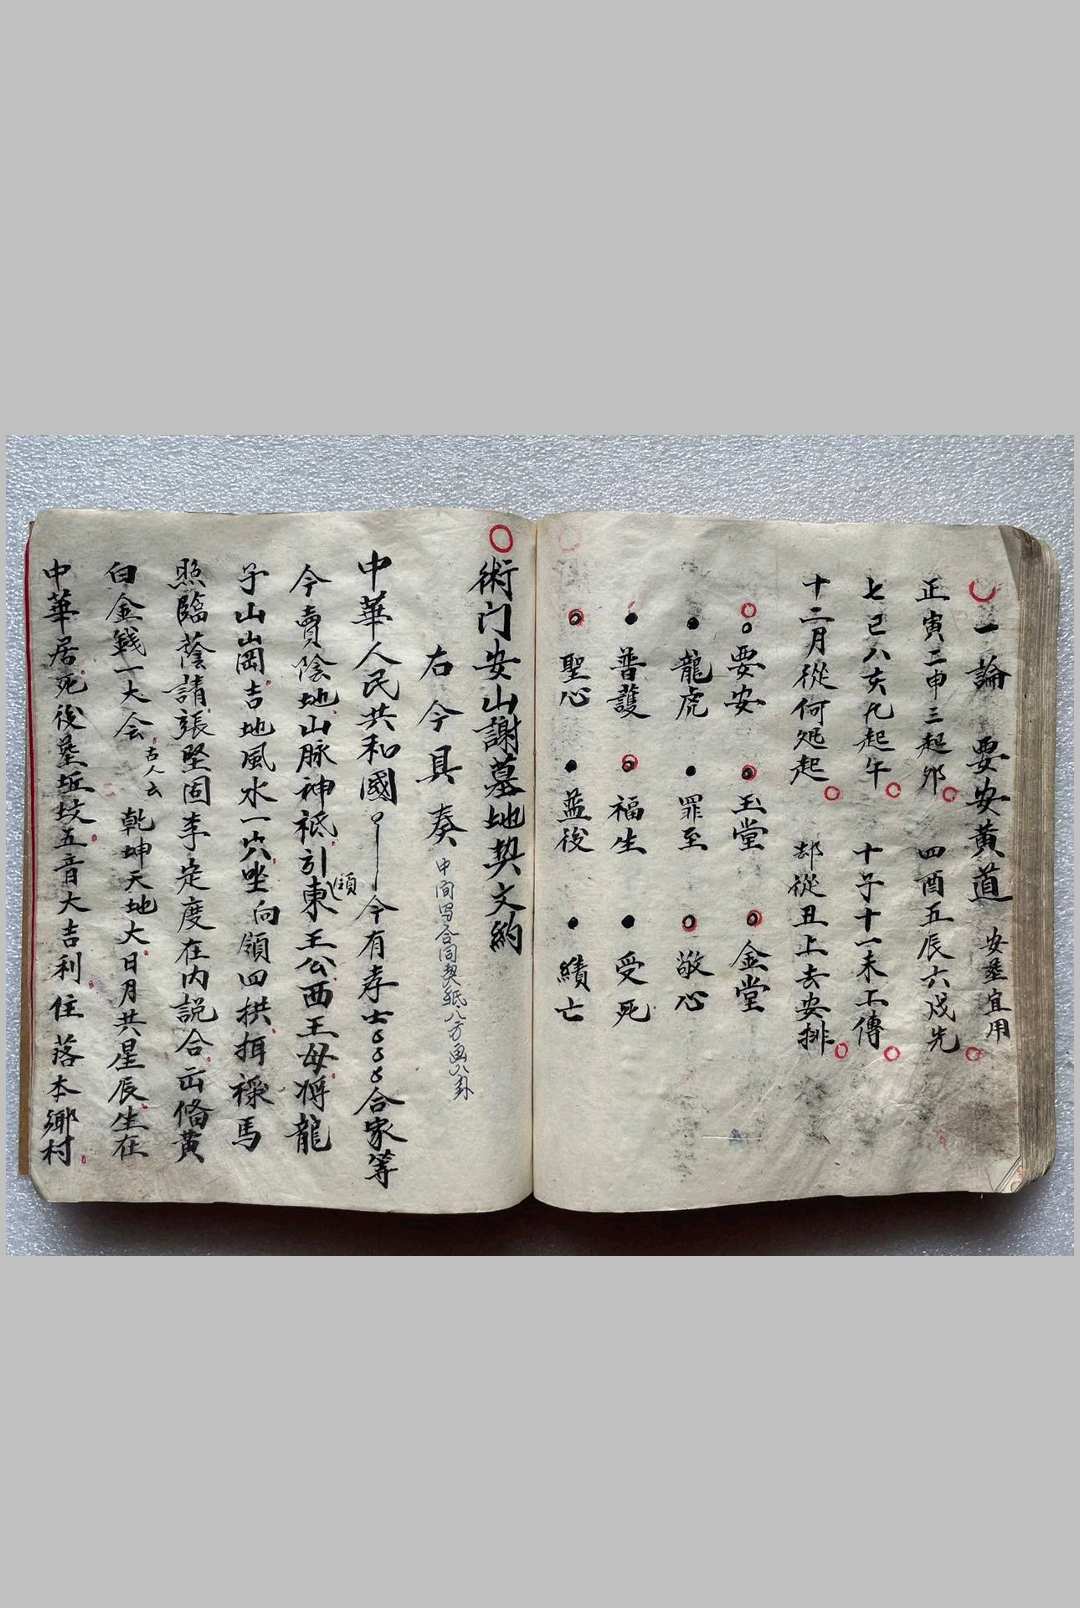 一論 要安黄道 安塟宜用
正寅二申三起夘 四酉五辰六戍先
七巳八亥九起午 十子十一未不傳
十二月從何処起 却從丑上去安排
要安 玉堂 金堂
龍虎 罪至 敬心
普護 福生 受死
聖心 益後 續亡
術门安山謝墓地契文約
右今具奏 中间写合同契纸八方画八卦
中華人民共和國 今有孝士 合家等
今賣陰地山脉神祗引領東王公西王母将龍
子山崗吉地風水一穴坐向領四拱揖禄馬
照臨蔭請張堅固李定度在内説合出俻黄
白金錢一大会 古人云 乾坤天地大日月共星辰生在
中華居死後墓坵坟五音大吉利住落本鄉村